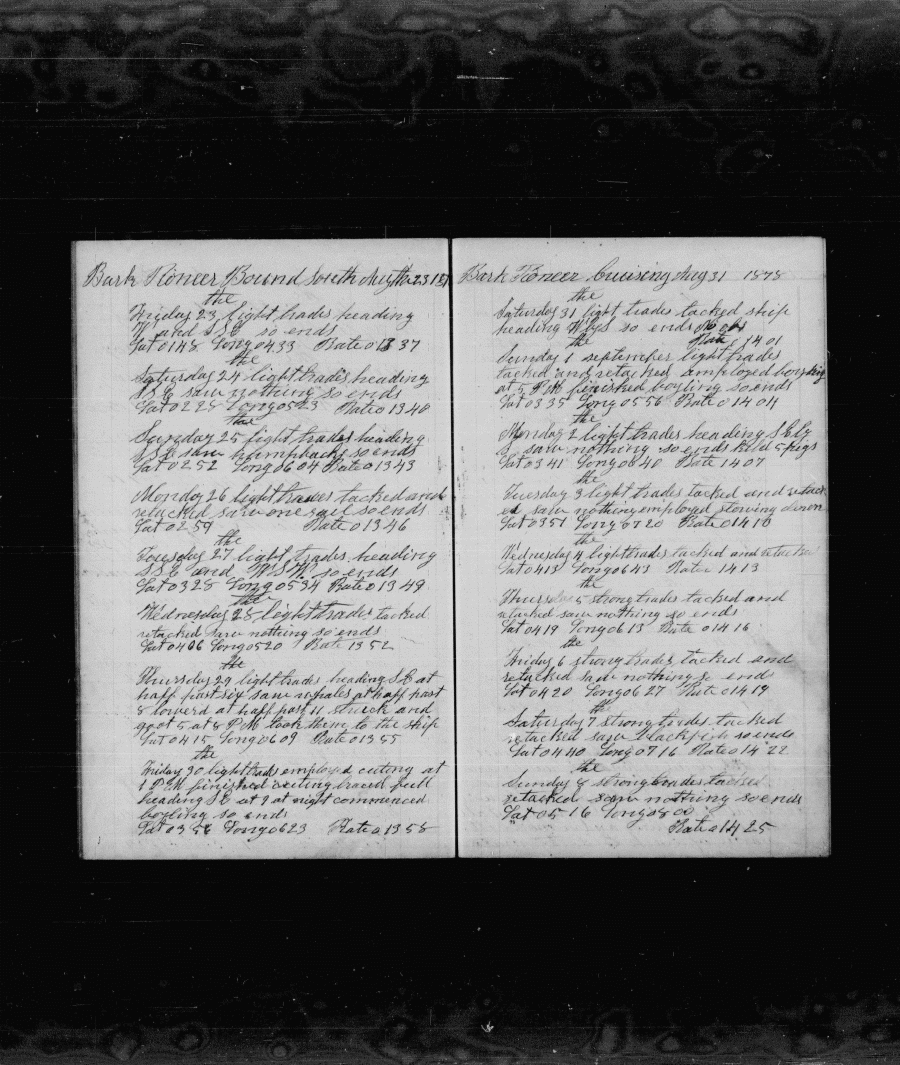 Bark Pioneer Bound South Aug the 23 187
the
Friday 23 light trades heading
W and S S E so ends
Lat 01 48 Long 04 33 Rate 0 13 37
the
Saturday 24 light trades heading
S S E saw nothing so ends
Lat 02 28 Long 05 23 Rate 0 13 40
the
Sunday 25 light trades heading
S S E saw humpbacks so ends
Lat 02 52 Long 06 04 Rate 0 13 43
Monday 26 light trades tacked and
retacked saw one sail so ends
Lat 02 59 Rate 0 13 46
the
Tuesday 27 light trades heading
S S E and W S W so ends
Lat 03 28 Long 05 34 Rate 0 13 49
the
Wednesday 28 light trades tacked
retacked saw nothing so ends
Lat 04 06 Long 05 20 Rate 13 52
the
Thursday 29 light trades heading S E at
haff past six saw whales at haff past
8 lowerd at haff past 11 struck and
goot 5 at 8 P M took them to the ship
Lat 04 15 Long 06 09 Rate 0 13 55
the
Friday 30 light trades employed cuting at
1 P M finished cuting braced full
heading S E at 9 at night commenced
boyling so ends
Lat 03 56 Long 06 23 Rate 0 13 58
Bark Pioneer Cruising Aug 31 1878
the
Saturday 31 light trades tacked ship
heading W'ly so ends No obs
the Rate 14 01
Sunday 1 september light trades
tacked and retacked employed boyling
at 5 P M finished boyling so ends
Lat 03 35 Long 05 56 Rate 0 14 04
the
Monday 2 light trades heading S E ly
saw nothing so ends kild 5 pigs
Lat 03 41 Long 06 40 Rate 14 07
the
Tuesday 3 light trades tacked and retack
ed saw nothing employed stowing down
Lat 03 51 Long 07 20 Rate 0 14 10
the
Wednesday 4 light trades tacked and retacked
Lat 04 13 Long 06 43 Rate 14 13
the
Thursday 5 strong trades tacked and
retacked saw nothing so ends
Lat 04 19 Long 06 13 Rate 0 14 16
the
Friday 6 strong trades tacked and
retacked saw nothing so ends
Lat 04 20 Long 06 27 Rate 0 14 19
the
Saturday 7 strong trades tacked
retacked saw blackfish so ends
Lat 04 40 Long 07 16 Rate 0 14 22
the
Sunday 8 strong trades tacked
retacked saw nothing so ends
Lat 05 16 Long 08 01
Rate 0 14 25